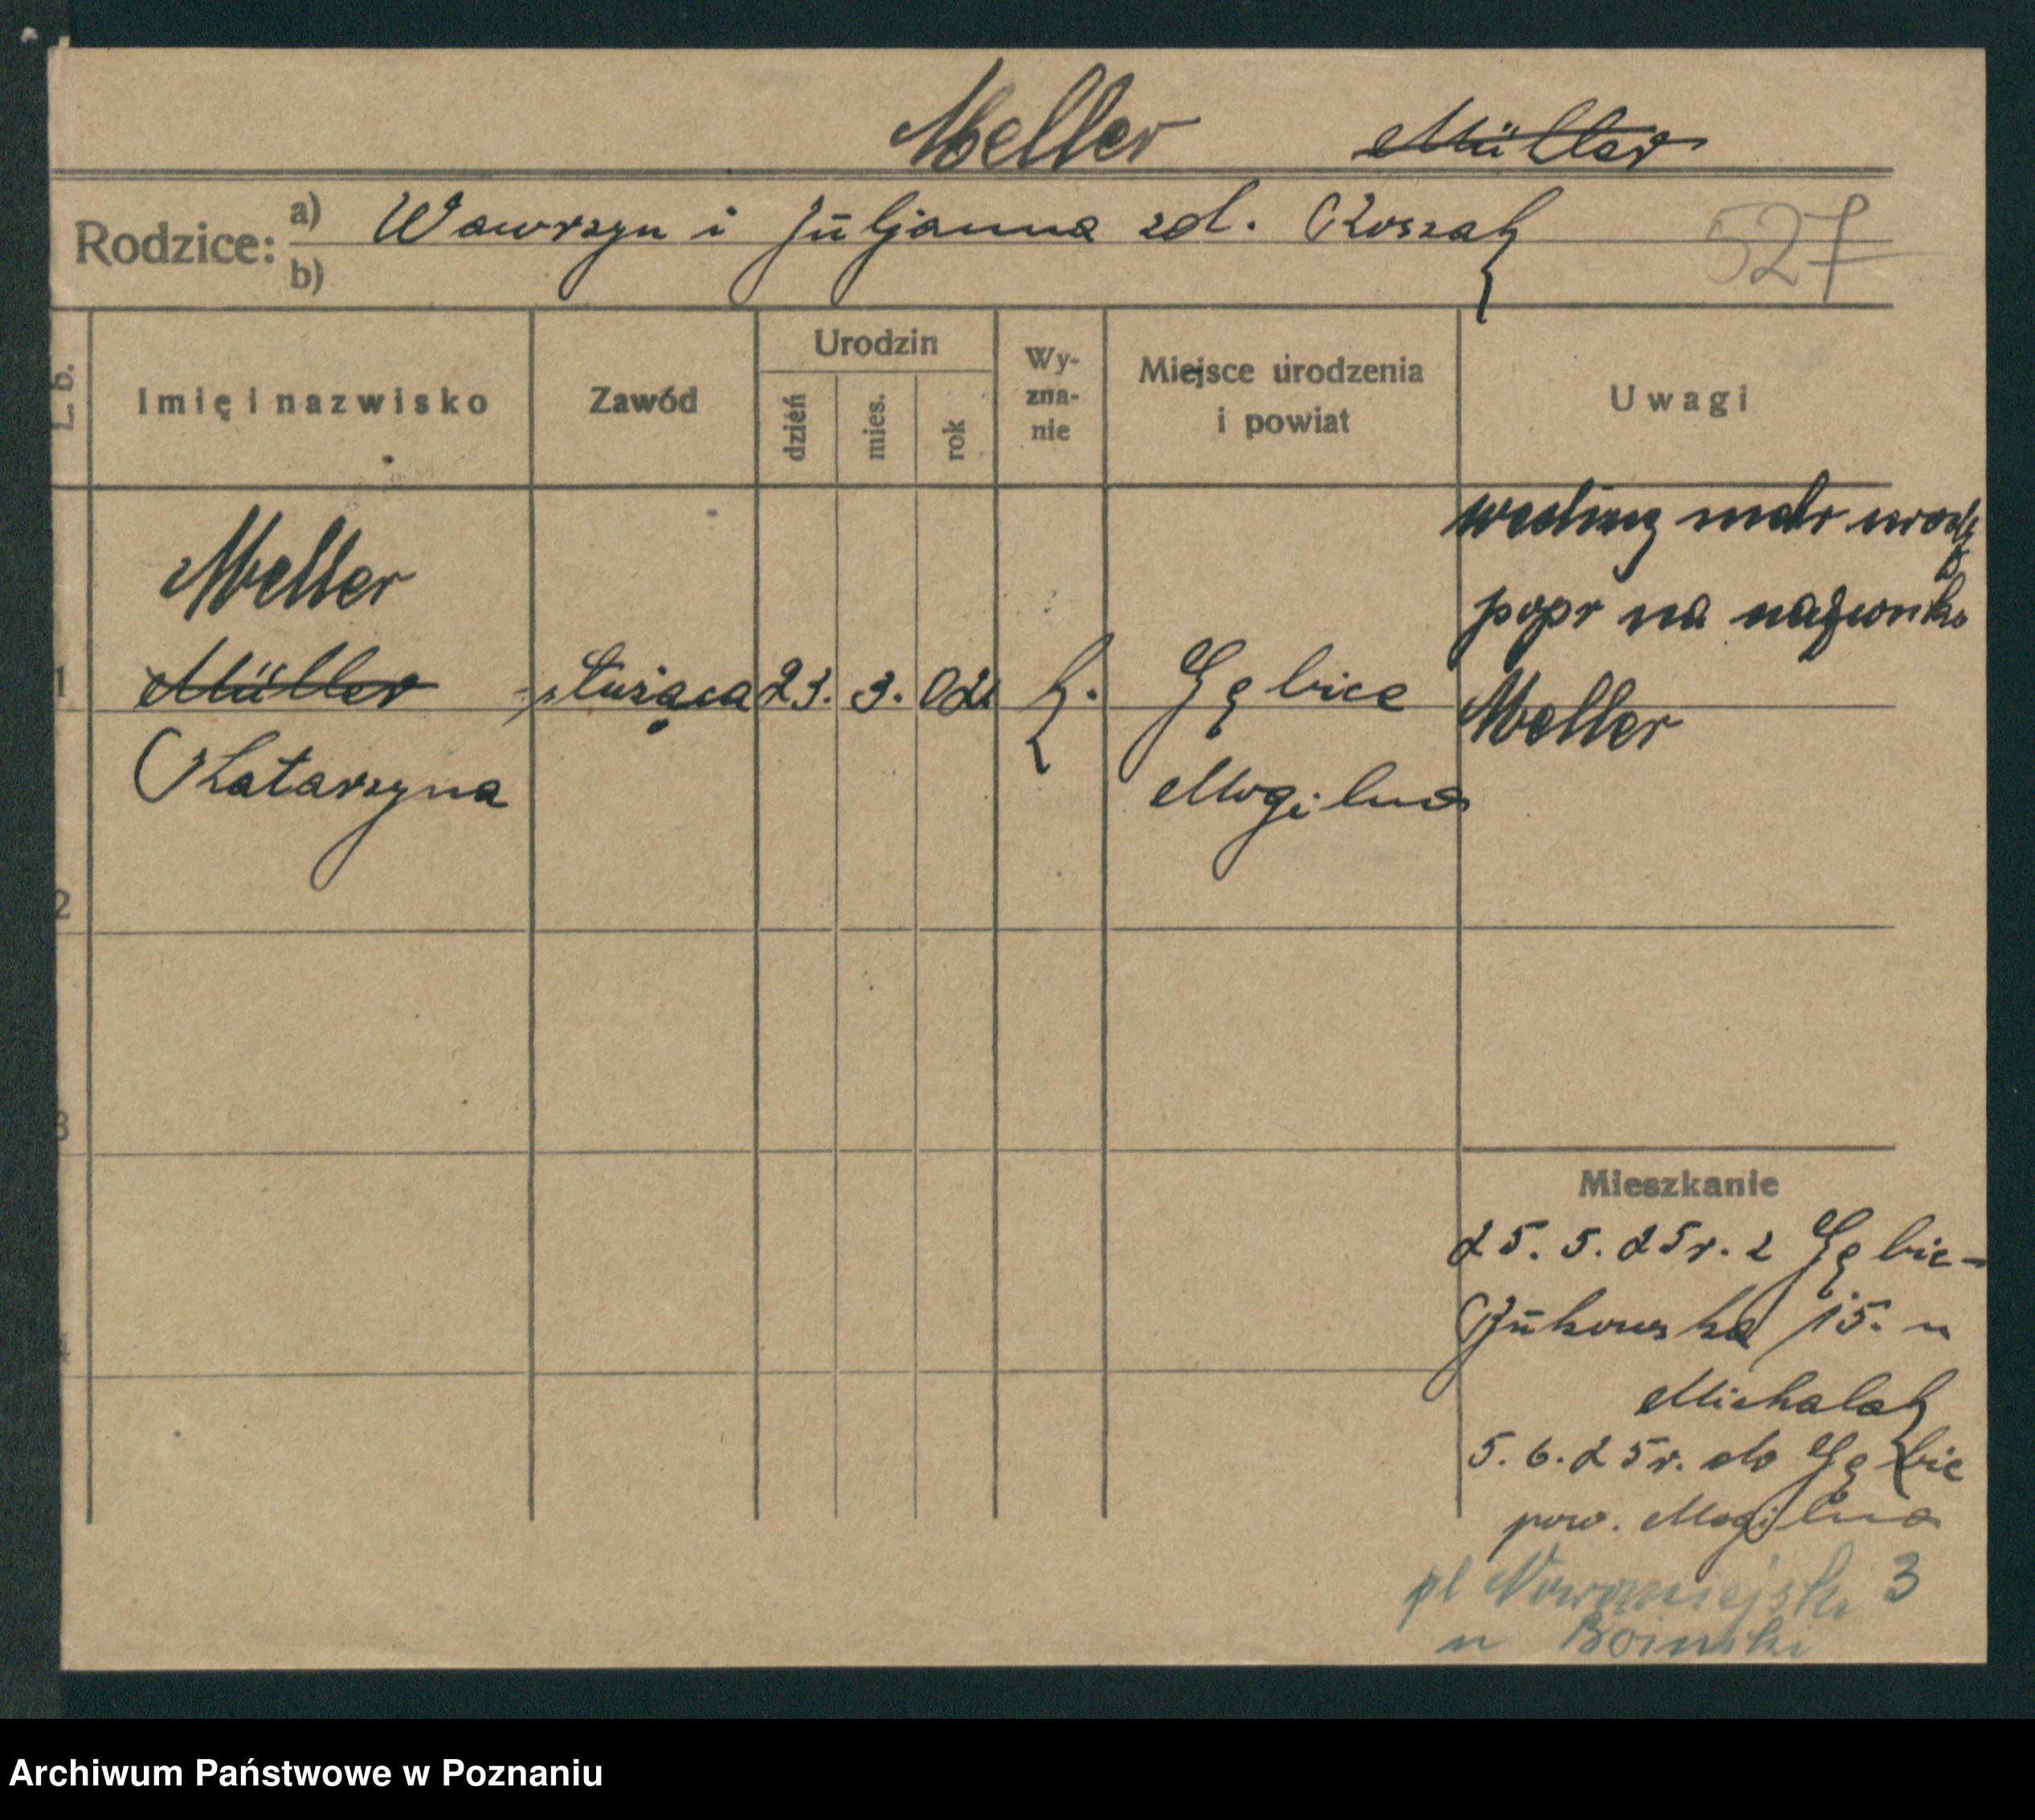 Meller Müller
Rodzice: a) Wawrzyn i Juljanna zd. Koszak
b)
527
L. b.
Imię i nazwisko
Zawód
Urodzin
dzień
mies.
rok
Wy-
zna-
nie
Miejsce urodzenia
i powiat
Uwagi
Meller
1 Müller służąca 23. 3. 02 k. Gębice
Katarzyna Mogilno
według metr urodz
popr na nazwisko
Meller
2
3
Mieszkanie
25. 5. 25 r. z Gębic -
Bukowska 15. u
Michalak
5. 6. 25 r. do Gębic
pow. Mogilno
pl Nowomiejski 3
u
Archiwum Państwowe w Poznaniu